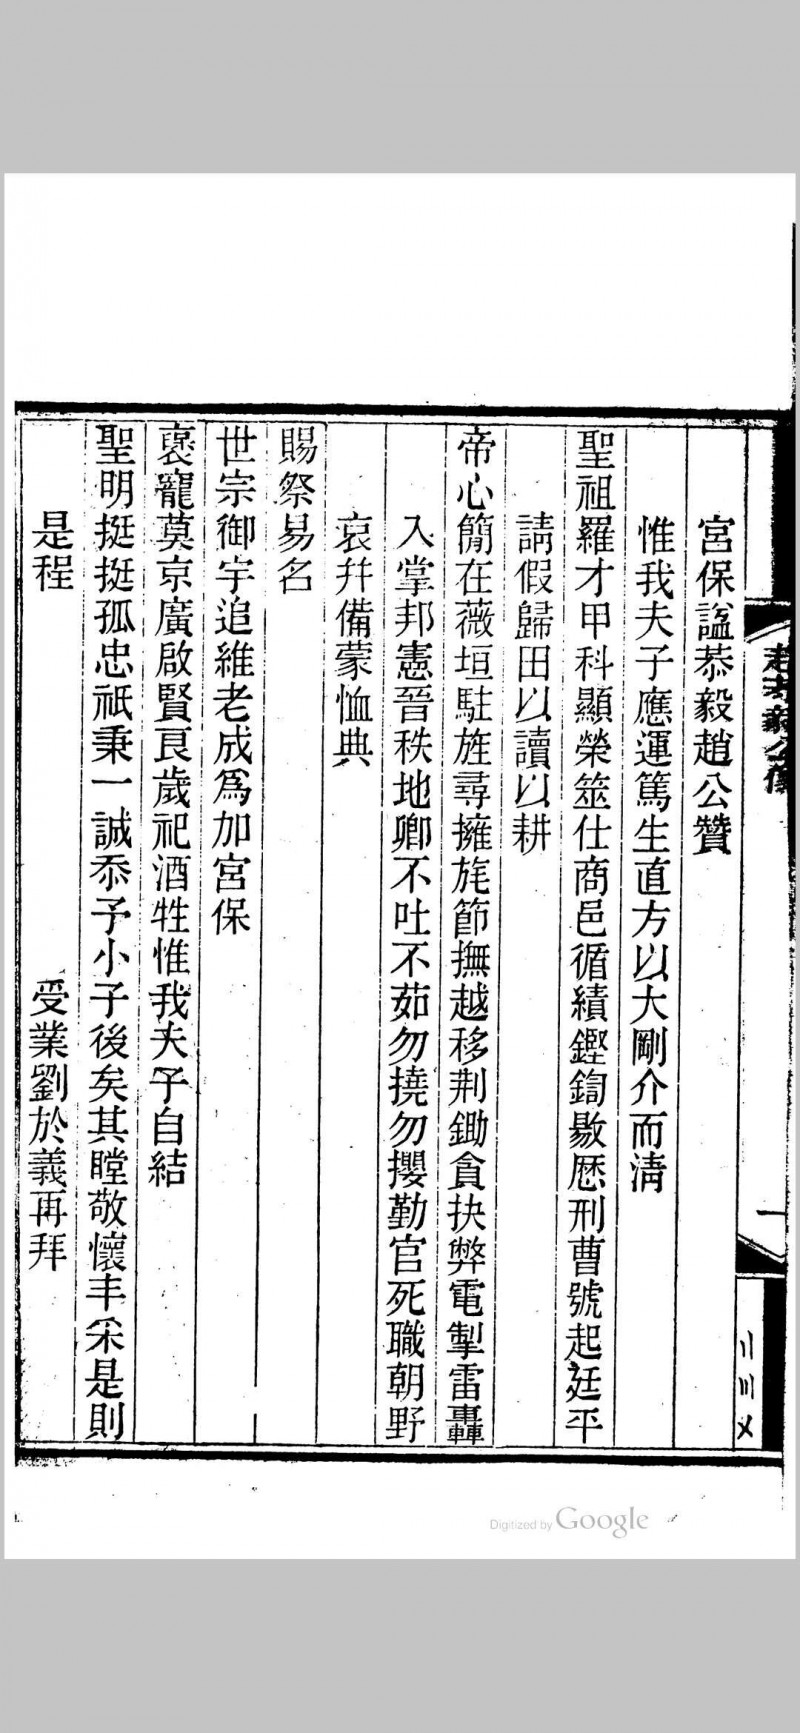 宮保諡恭毅趙公贊
惟我夫子應運篤生直方以大剛介而淸
聖祖羅才甲科顯榮筮仕商邑循績鏗鍧敭歷刑曹號起廷平
請假歸田以讀以耕
帝心簡在薇垣駐旌尋擁旄節撫越移荆鋤貪抉弊電掣雷轟
入掌邦憲晉秩地卿不吐不茹勿撓勿攖勤官死職朝野
哀幷備蒙恤典
賜祭易名
世宗御宇追維老成爲加宮保
褒寵莫京廣啟賢良歲祀酒牲惟我夫子自結
聖明挺挺孤忠祇秉一誠忝予小子後矣其瞠敬懷丰采是則
是程
受業劉於義再拜
趙恭毅公
一
Digitized by Google